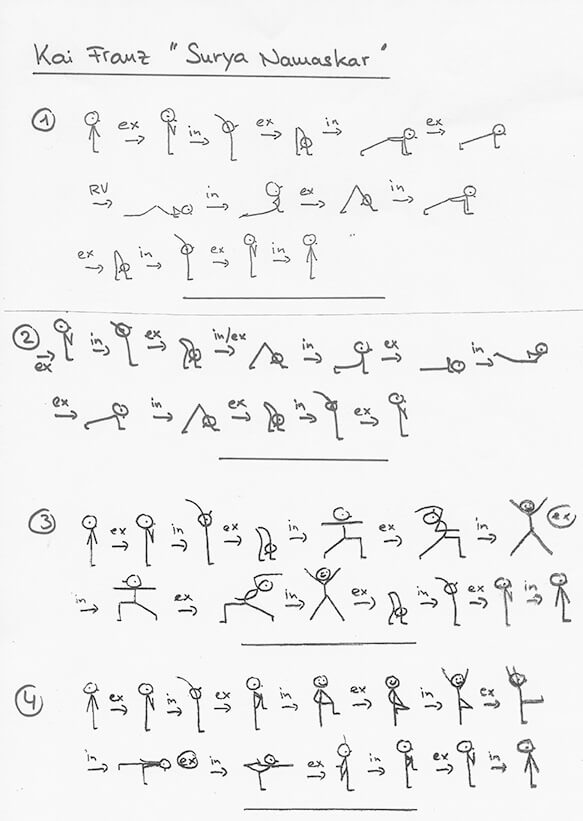 Kai Franz "Surya Namaskar"
1 ex in ex in ex
RV in ex in
ex in ex in "
2 ex in ex in/ex in ex in
ex in ex in ex
3 ex in ex in ex in ex
in ex in ex in ex in
4 ex in ex in ex in ex
in ex in ex in ex in